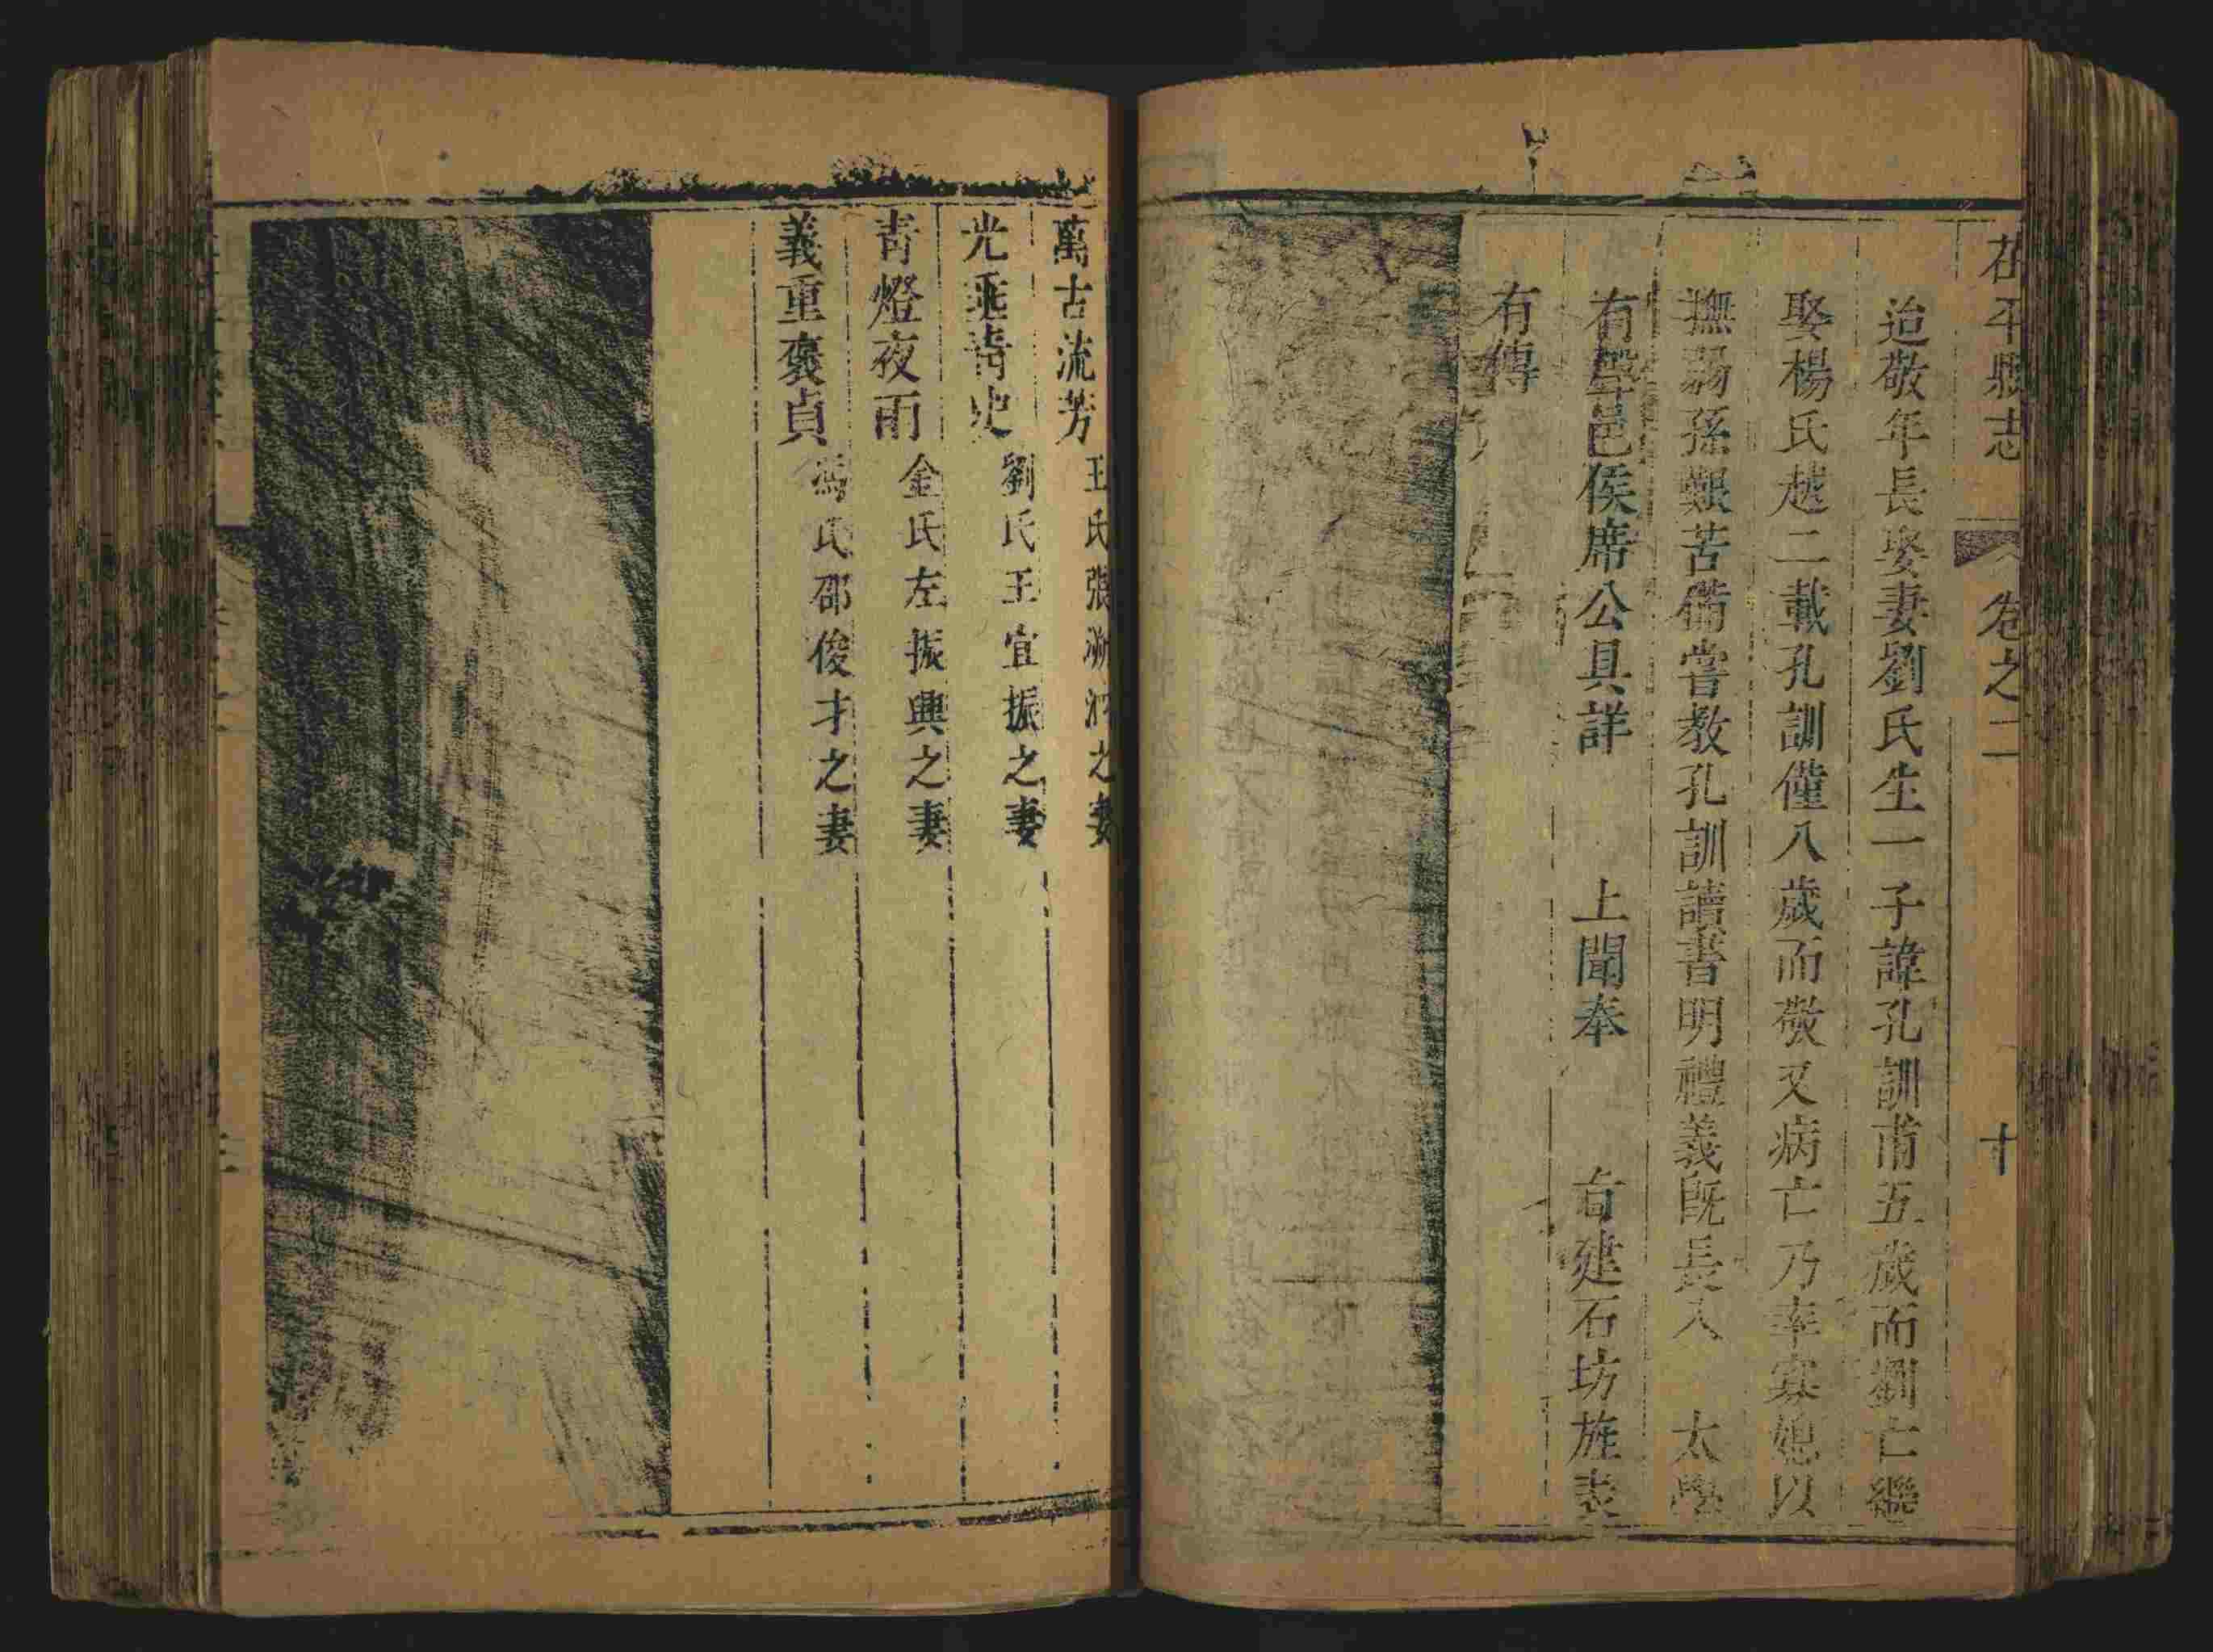 茌平縣志 卷之二 十
迨敬年長娶妻劉氏生一子諱孔訓甫五歲而劉亡繼
娶楊氏越二載孔訓僅八歲而敬又病亡乃幸寡媳以
撫弱孫艱苦備嘗教孔訓讀書明禮義既長入 太學
有聲邑侯席公具詳 上聞奉 旨建石坊旌表
有傳
萬古流芳 王氏張 之妻
光垂青史 劉氏王宜振之妻
青燈夜雨 金氏左振興之妻
義重褒貞 馮氏邵俊才之妻